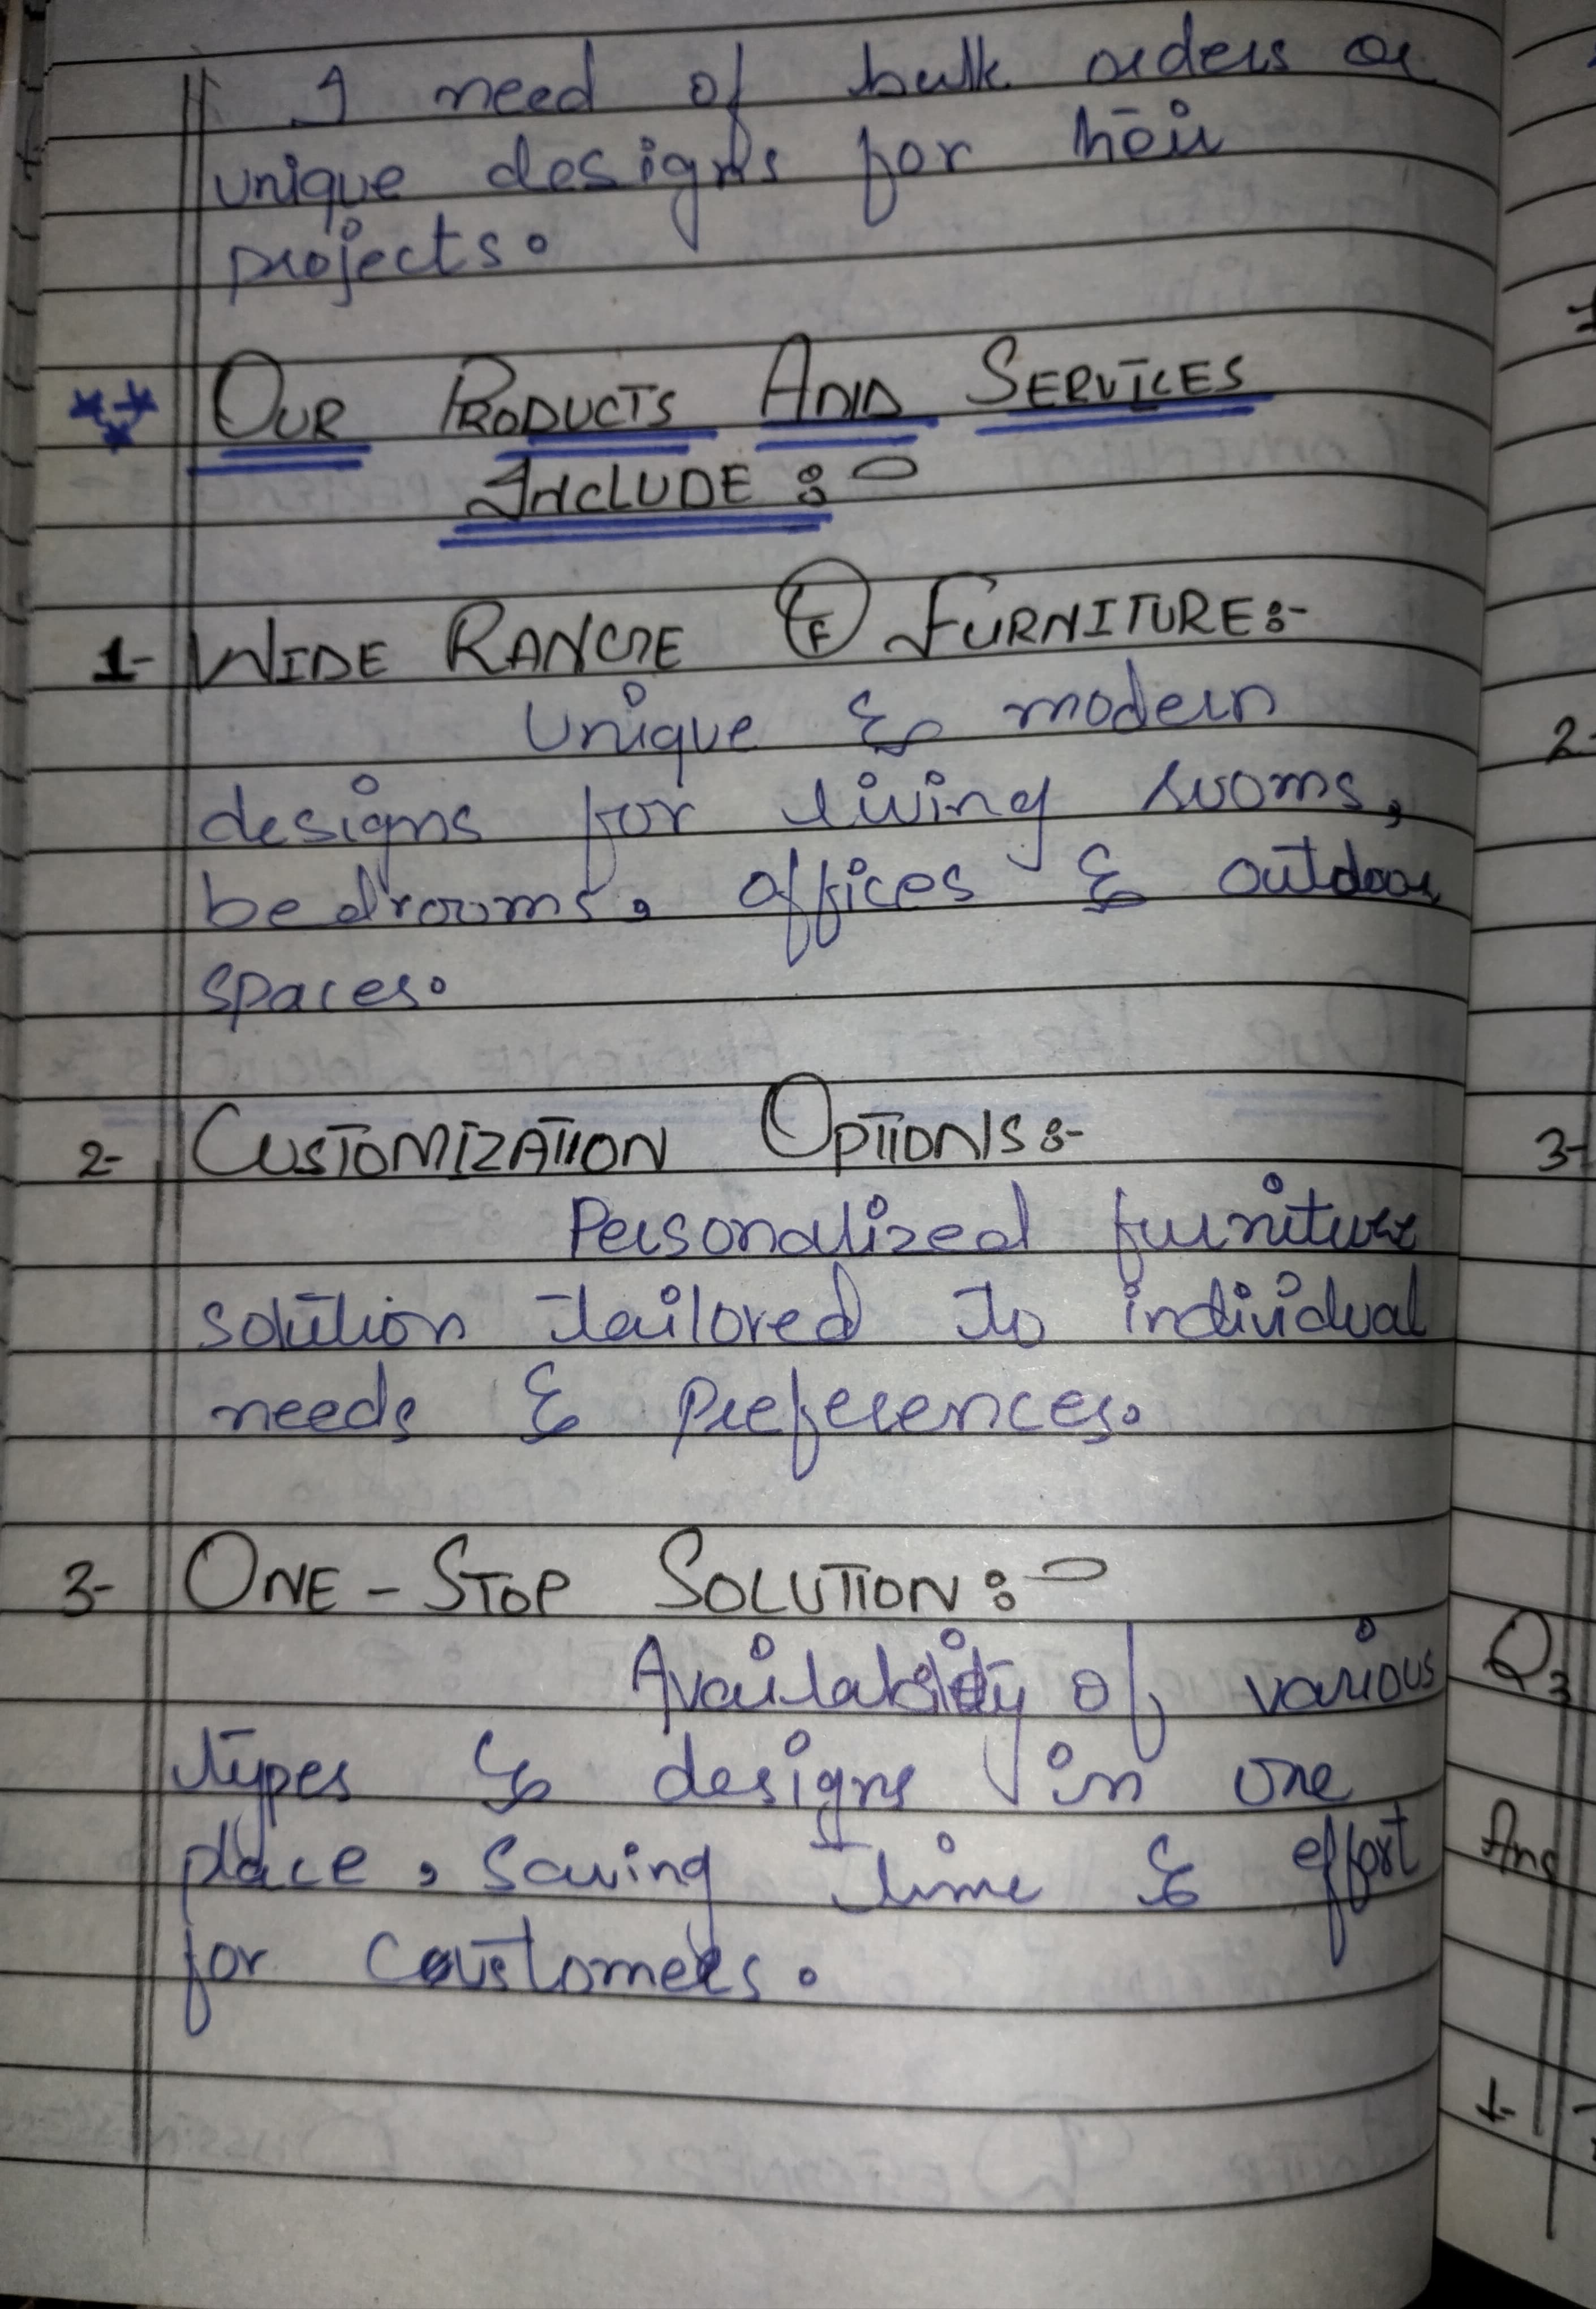 I need of bulk orders or
unique designs for their
projects.
OUR PRODUCTS AND SERVICES
INCLUDE :-
1- WIDE RANGE OF FURNITURE:-
Unique & modern
designs for living rooms,
bedrooms, offices & outdoor
spaces.
2- CUSTOMIZATION OPTIONS:-
Personalized furniture
solution tailored to individual
needs & Preferences.
3- ONE-STOP SOLUTION:-
Availability of various
types & designs in one
place, saving time & effort
for customers.
2-
3-
Q3
Ans
1-